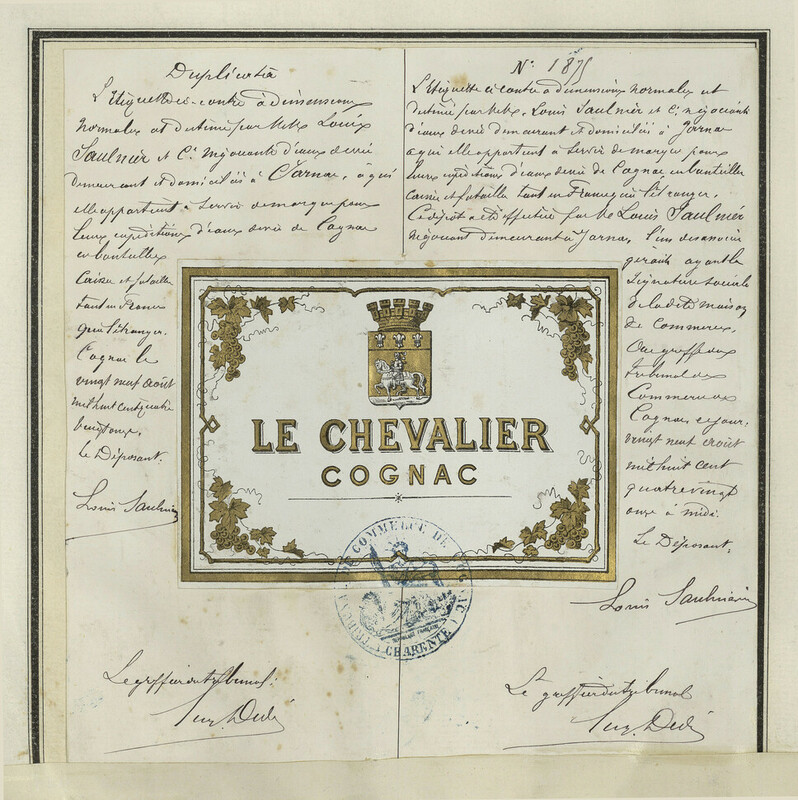 Duplicata
L'étiquette ci-contre a dimensions
normales et destinée par MM. Louis
Saulnier et Cie négociants d'eaux de vie
demeurant et domiciliés à Jarnac, à qui
elle appartient à servir de marque pour
leurs expéditions d'eaux de vie de Cognac
en bouteilles
Caisses et futailles
tant en France
qu'à l'étranger.
Cognac le
vingt neuf août
mil huit cent quatre
vingt onze.
Le Déposant.
Louis Saulnier
N° 1875
L'étiquette ci contre a dimensions normales et
destinée par MM. Louis Saulnier et Cie négociants
d'eaux de vie demeurant et domiciliés à Jarnac
a qui elle appartient à servir de marque pour
leurs expéditions d'eaux de vie de Cognac en bouteilles
caisses et futailles tant en France qu'à l'étranger.
Ce dépôt a été effectué par Mr Louis Saulnier
négociant demeurant à Jarnac, l'un des associés
gérants ayant la
signature sociale
de la dite maison
de Commerce,
Au greffe du
tribunal de
Commerce de
Cognac, ce jour,
vingt neuf août
mil huit cent
quatre vingt
onze à midi.
Le Déposant,
Louis Saulnier
LE CHEVALIER
COGNAC
TRIBUNAL DE COMMERCE DE COGNAC
(CHARENTE)
Le greffier du tribunal.
Le greffier du tribunal